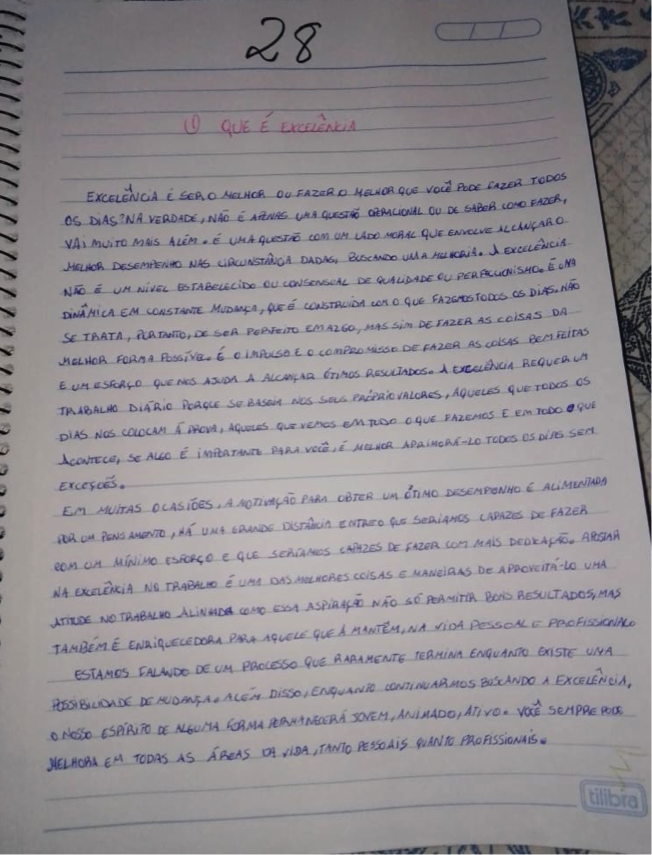 28
① QUE É EXCELÊNCIA
EXCELÊNCIA É SER O MELHOR OU FAZER O MELHOR QUE VOCÊ PODE FAZER TODOS
OS DIAS? NA VERDADE, NÃO É APENAS UMA QUESTÃO OPERACIONAL OU DE SABER COMO FAZER,
VAI MUITO MAIS ALÉM. É UMA QUESTÃO COM UM LADO MORAL QUE ENVOLVE ALCANÇAR O
MELHOR DESEMPENHO NAS CIRCUNSTÂNCIA DADAS, BUSCANDO UMA MELHORIA. A EXCELÊNCIA
NÃO É UM NÍVEL ESTABELECIDO OU CONSENSUAL DE QUALIDADE OU PERFECCIONISMO. É UMA
DINÂMICA EM CONSTANTE MUDANÇA, QUE É CONSTRUIDA COM O QUE FAZEMOS TODOS OS DIAS. NÃO
SE TRATA, PORTANTO, DE SER PERFEITO EM ALGO, MAS SIM DE FAZER AS COISAS DA
MELHOR FORMA POSSÍVEL. É O IMPULSO E O COMPROMISSO DE FAZER AS COISAS BEM FEITAS
E UM ESFORÇO QUE NOS AJUDA A ALCANÇAR ÓTIMOS RESULTADOS. A EXCELÊNCIA REQUER UM
TRABALHO DIÁRIO PORQUE SE BASEIA NOS SEUS PRÓPRIO VALORES, AQUELES QUE TODOS OS
DIAS NOS COLOCAM Á PROVA, AQUELES QUE VEMOS EM TUDO O QUE FAZEMOS E EM TODO O QUE
ACONTECE, SE ALGO É IMPORTANTE PARA VOCÊ, É MELHOR APRIMORÁ-LO TODOS OS DIAS SEM
EXCEÇÕES.
EM MUITAS OCASIÕES, A MOTIVAÇÃO PARA OBTER UM ÓTIMO DESEMPENHO É ALIMENTADA
POR UM PENSAMENTO, HÁ UMA GRANDE DISTÂNCIA ENTRE O QUE SERÍAMOS CAPAZES DE FAZER
COM UM MÍNIMO ESFORÇO E QUE SERÍAMOS CAPAZES DE FAZER COM MAIS DEDICAÇÃO. APOSTAR
NA EXCELÊNCIA NO TRABALHO É UMA DAS MELHORES COISAS E MANEIRAS DE APROVEITÁ-LO UMA
ATITUDE NO TRABALHO ALINHADA COMO ESSA ASPIRAÇÃO NÃO SÓ PERMITIR BONS RESULTADOS, MAS
TAMBÉM É ENRIQUECEDORA PARA AQUELE QUE A MANTÊM, NA VIDA PESSOAL E PROFISSIONAL
ESTAMOS FALANDO DE UM PROCESSO QUE RARAMENTE TERMINA ENQUANTO EXISTE UMA
POSSIBILIDADE DE MUDANÇA. ALÉM DISSO, ENQUANTO CONTINUARMOS BUSCANDO A EXCELÊNCIA,
O NOSSO ESPÍRITO DE ALGUMA FORMA PERMANECERÁ JOVEM, ANIMADO, ATIVO. VOCÊ SEMPRE PODE
MELHORA EM TODAS AS ÁREAS DA VIDA, TANTO PESSOAIS QUANTO PROFISSIONAIS.
tilibra